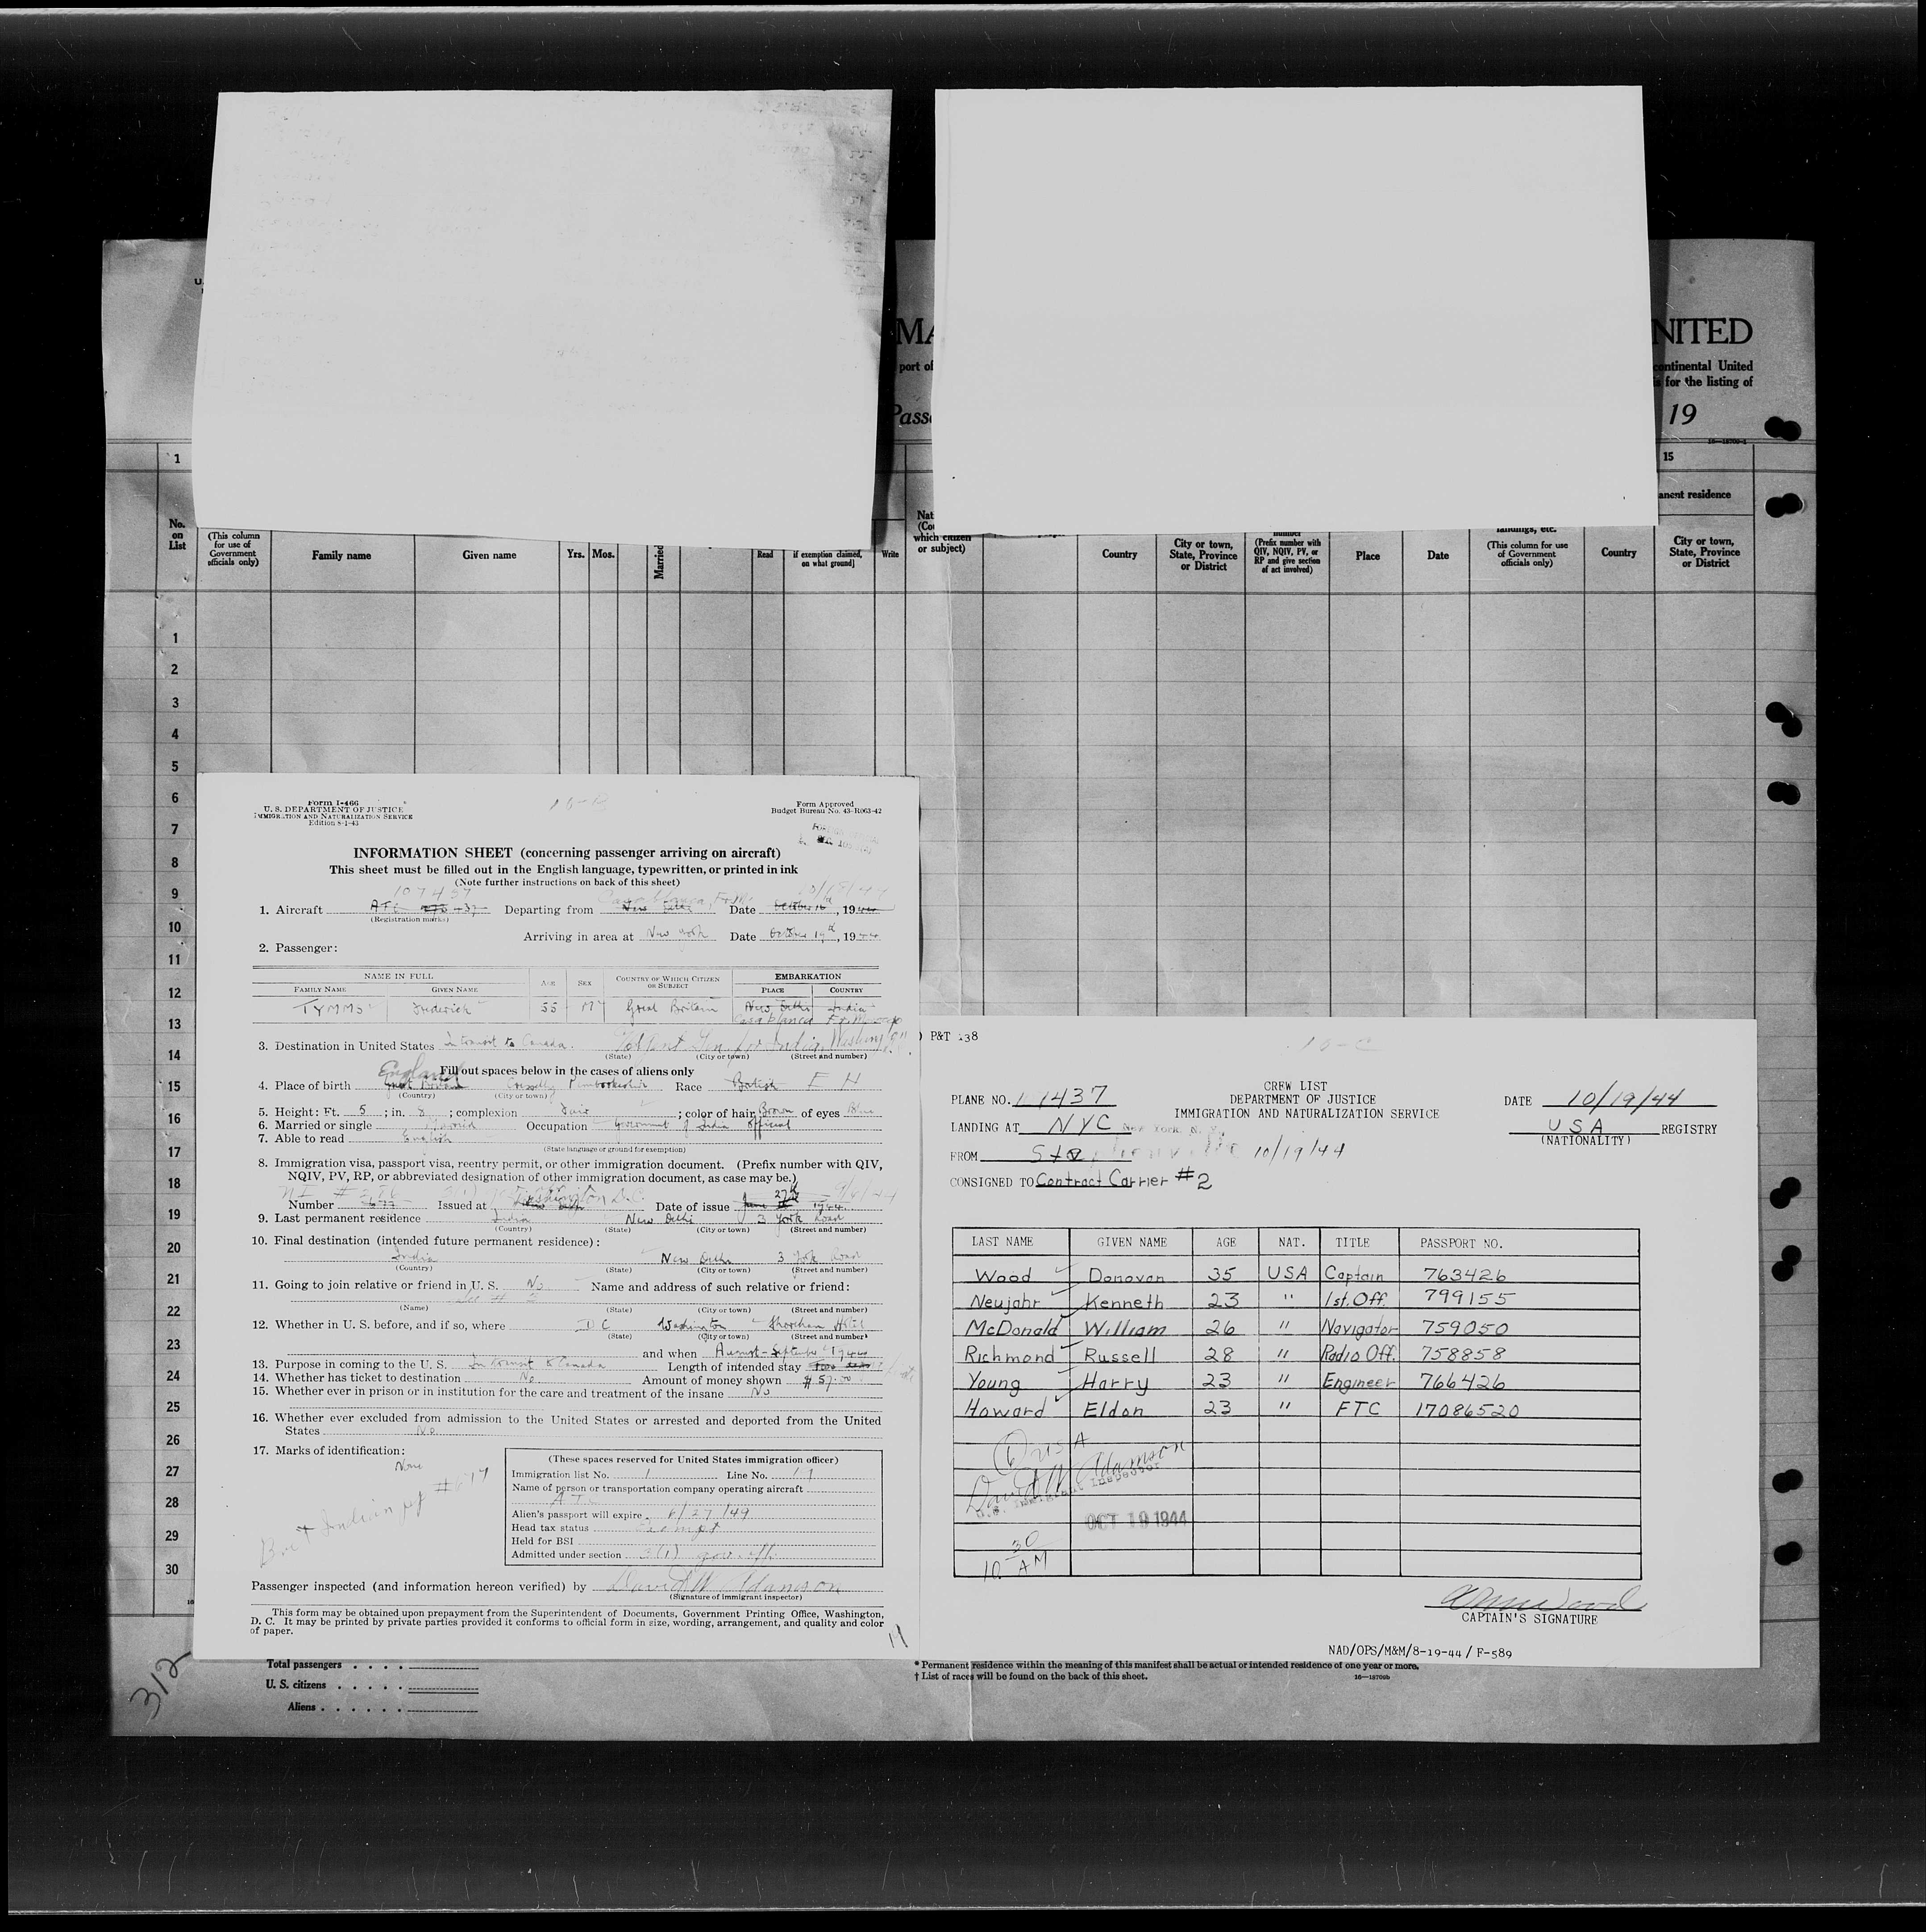 MA
NITED
port of
continental United
is for the listing of
Passe
19
1
15
anent residence
No.
on
List
(This column
for use of
Government
officials only)
Family name
Given name
Yrs.
Mos.
Married
Read
if exemption claimed,
on what ground]
Write
which citizen
or subject)
Country
City or town,
State, Province
or District
number
(Prefix number with
QIV, NQIV, PV, or
RP and give section
of act involved)
Place
Date
landings, etc.
(This column for use
of Government
officials only)
Country
City or town,
State, Province
or District
1
2
3
4
5
6
7
8
9
10
11
12
13
14
15
16
17
18
19
20
21
22
23
24
25
26
27
28
29
30
Form I-466
U. S. DEPARTMENT OF JUSTICE
IMMIGRATION AND NATURALIZATION SERVICE
Edition 8-1-43
10-B
Form Approved
Budget Bureau No. 43-R063-42
INFORMATION SHEET (concerning passenger arriving on aircraft)
This sheet must be filled out in the English language, typewritten, or printed in ink
(Note further instructions on back of this sheet)
107437
1. Aircraft ATC Departing from Casablanca, Fr. M. New Delhi Date October 16, 1944
(Registration marks)
Arriving in area at New York Date October 19th, 1944
2. Passenger:
NAME IN FULL
AGE
SEX
COUNTRY OF WHICH CITIZEN
OR SUBJECT
EMBARKATION
FAMILY NAME
GIVEN NAME
PLACE
COUNTRY
TYMMS Frederick 55 M Great Britain New Delhi India
Casablanca Fr. Morocco
3. Destination in United States In transit to Canada.
(State) (City or town) (Street and number)
England
Fill out spaces below in the cases of aliens only
4. Place of birth Great Britain Pembrokeshire Race British
(Country) (City or town)
5. Height: Ft. 5; in. 8; complexion Fair; color of hair Brown of eyes Blue
6. Married or single Married Occupation Government of India official
7. Able to read English
(State language or ground for exemption)
8. Immigration visa, passport visa, reentry permit, or other immigration document. (Prefix number with QIV,
NQIV, PV, RP, or abbreviated designation of other immigration document, as case may be.)
Number Issued at Washington D.C. Date of issue June 27th 1944
9. Last permanent residence India New Delhi 3 York Road
(Country) (State) (City or town) (Street and number)
10. Final destination (intended future permanent residence):
India New Delhi 3 York Road
(Country) (State) (City or town) (Street and number)
11. Going to join relative or friend in U. S. No Name and address of such relative or friend:
(Name) (State) (City or town) (Street and number)
12. Whether in U. S. before, and if so, where DC Washington Shoreham Hotel
(State) (City or town) (Street and number)
and when August-September 1944
13. Purpose in coming to the U. S. In transit to Canada Length of intended stay
14. Whether has ticket to destination No Amount of money shown $57.00
15. Whether ever in prison or in institution for the care and treatment of the insane No
16. Whether ever excluded from admission to the United States or arrested and deported from the United
States No
17. Marks of identification:
None
(These spaces reserved for United States immigration officer)
Immigration list No. 1 Line No. 11
Name of person or transportation company operating aircraft
ATC
Alien's passport will expire 6/27/49
Head tax status Exempt
Held for BSI
Admitted under section 3(1) gov. off.
Passenger inspected (and information hereon verified) by David W Adamson
(Signature of immigrant inspector)
This form may be obtained upon prepayment from the Superintendent of Documents, Government Printing Office, Washington,
D. C. It may be printed by private parties provided it conforms to official form in size, wording, arrangement, and quality and color
of paper.
11
P&T 138
10-C
CREW LIST
DEPARTMENT OF JUSTICE
IMMIGRATION AND NATURALIZATION SERVICE
PLANE NO. 1437
DATE 10/19/44
LANDING AT NYC New York, N. Y.
USA REGISTRY
(NATIONALITY)
FROM Stephenville 10/19/44
CONSIGNED TO Contract Carrier #2
LAST NAME GIVEN NAME AGE NAT. TITLE PASSPORT NO.
Wood Donovan 35 USA Captain 763426
Neujahr Kenneth 23 " 1st. Off. 799155
McDonald William 26 " Navigator 759050
Richmond Russell 28 " Radio Off. 758858
Young Harry 23 " Engineer 766426
Howard Eldon 23 " FTC 17086520
(6) USA
David W Adamson
U.S. Immigrant Inspector
OCT 19 1944
10 30 AM
CAPTAIN'S SIGNATURE
NAD/OPS/M&M/8-19-44 / F-589
312
Total passengers
U. S. citizens
Aliens
* Permanent residence within the meaning of this manifest shall be actual or intended residence of one year or more.
† List of races will be found on the back of this sheet.
16—18709b